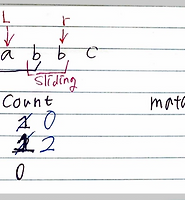 L r
a b b c
sliding
Count mat
1 0
1 2
0